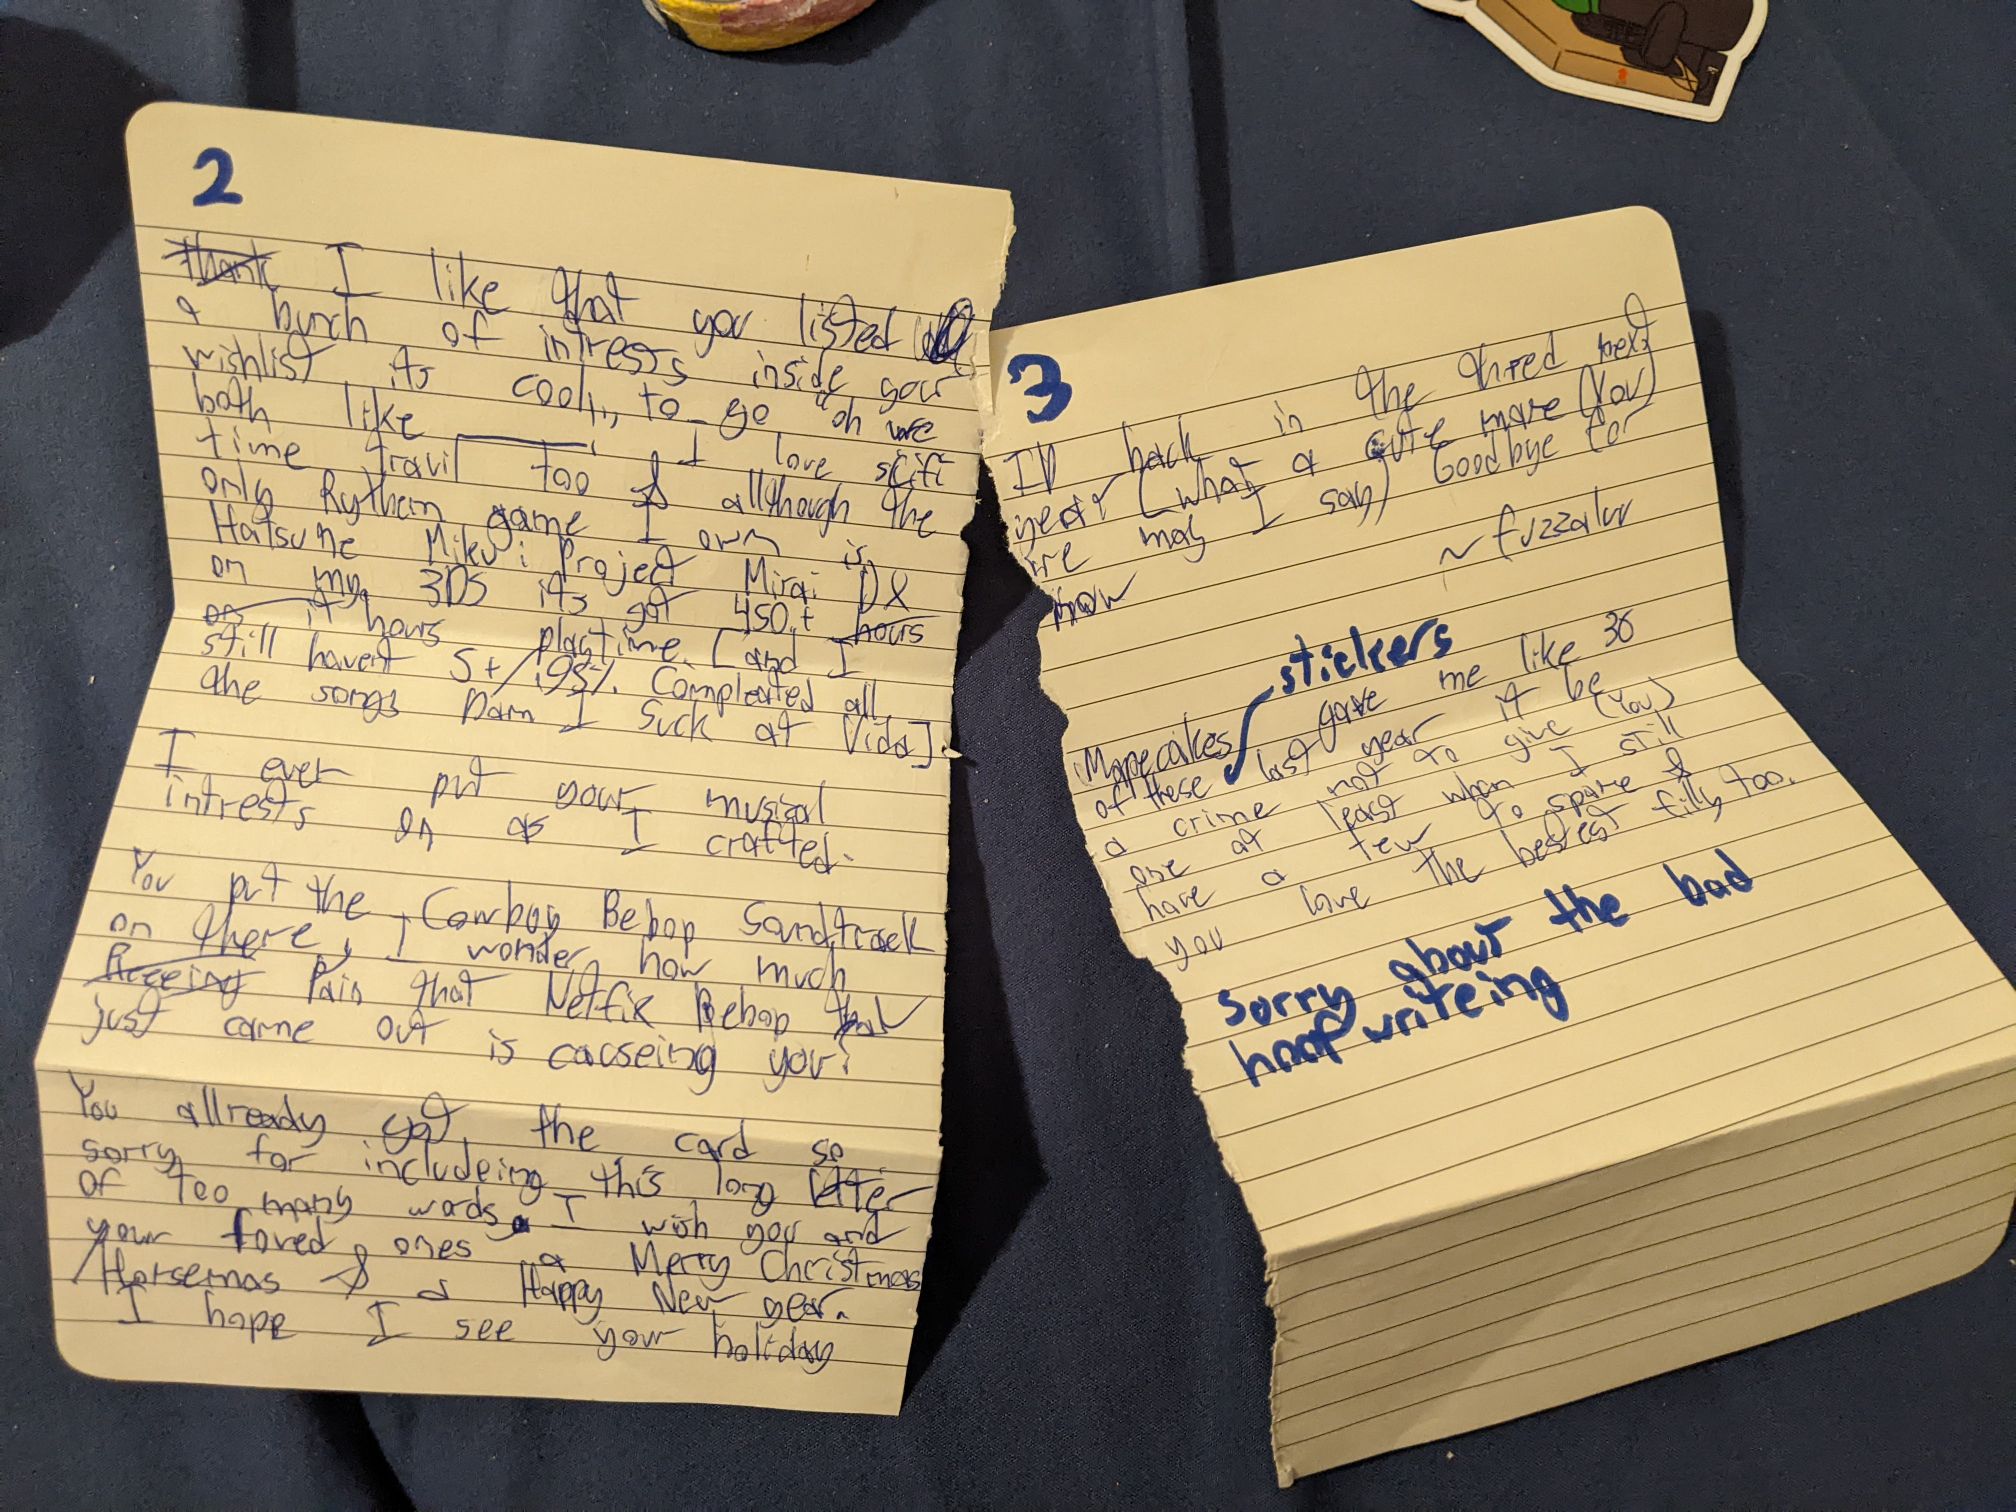 2
thank I like that you listed
a bunch of intrests inside your
wishlist its cool,, to go "oh we
both like ____". I love scifi
time travil too & allthough the
only Rythem game I own is
Hatsune Miku: Project Mirai DX
on my 3DS its got 450+ hours
on it hours playtime. [and I
still havent S+/.95% Compleated all
the songs Damn I Suck at Vida].
I ever put your musical
intrests on as I crafted.
You put the Cowboy Bebop Soundtrack
on there, I wonder how much
Pain that Netfix Bebop that
just came out is causeing you?
You allready got the card so
sorry for includeing this long letter
of too many words. I wish you and
your loved ones a Merry Christmas
/Horsemas & a Happy New year.
I hope I see your holiday
3
in the thred next
year (what a cute mare (You)
we may I say) Goodbye for
now
~fuzzalur
stickers
Marecakes gave me like 30
of these last year it be
a crime not to give (You)
one at least when I still
have a few to spare &
you love the bestest filly too.
sorry about the bad
hoof writeing